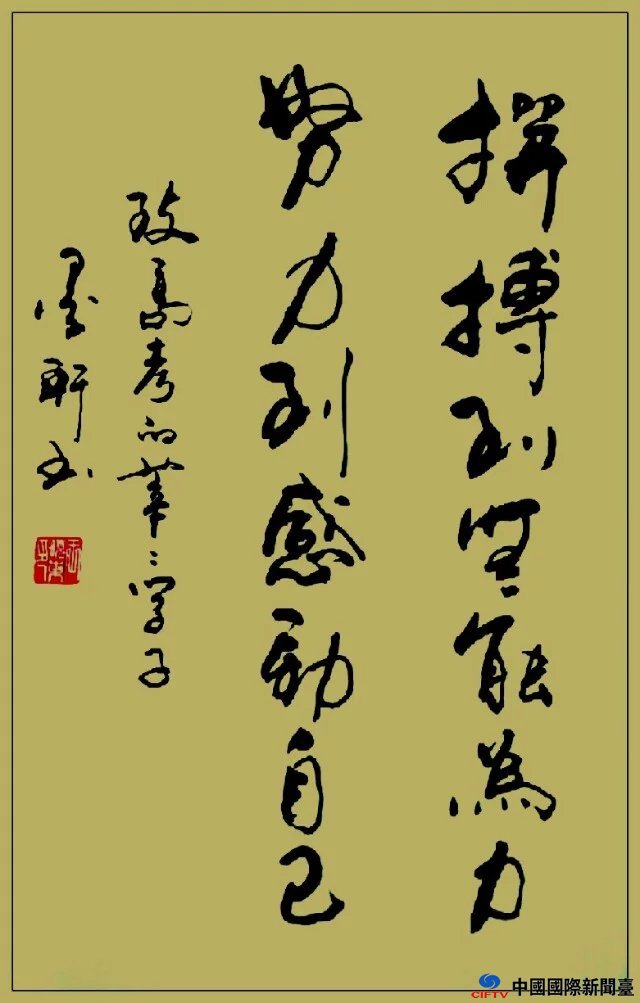 拼搏到無能為力
努力到感動自己
致高考的莘々学子
墨軒书
CIFTV 中國國際新聞臺